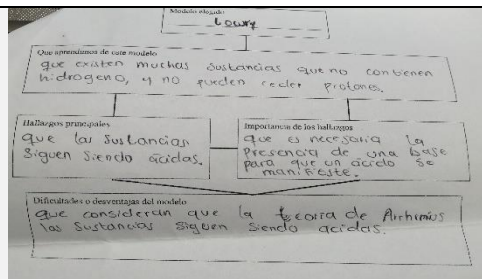 Modelo elegido
Lowry
Que aprendimos de este modelo
que existen muchas sustancias que no contienen
hidrogeno, y no pueden ceder protones.
Hallazgos principales
que las sustancias
siguen siendo ácidas.
Importancia de los hallazgos
que es necesaria la
presencia de una base
para que un ácido se
manifieste.
Dificultades o desventajas del modelo
que consideran que la teoría de Arrhinius
las sustancias siguen siendo acidas.